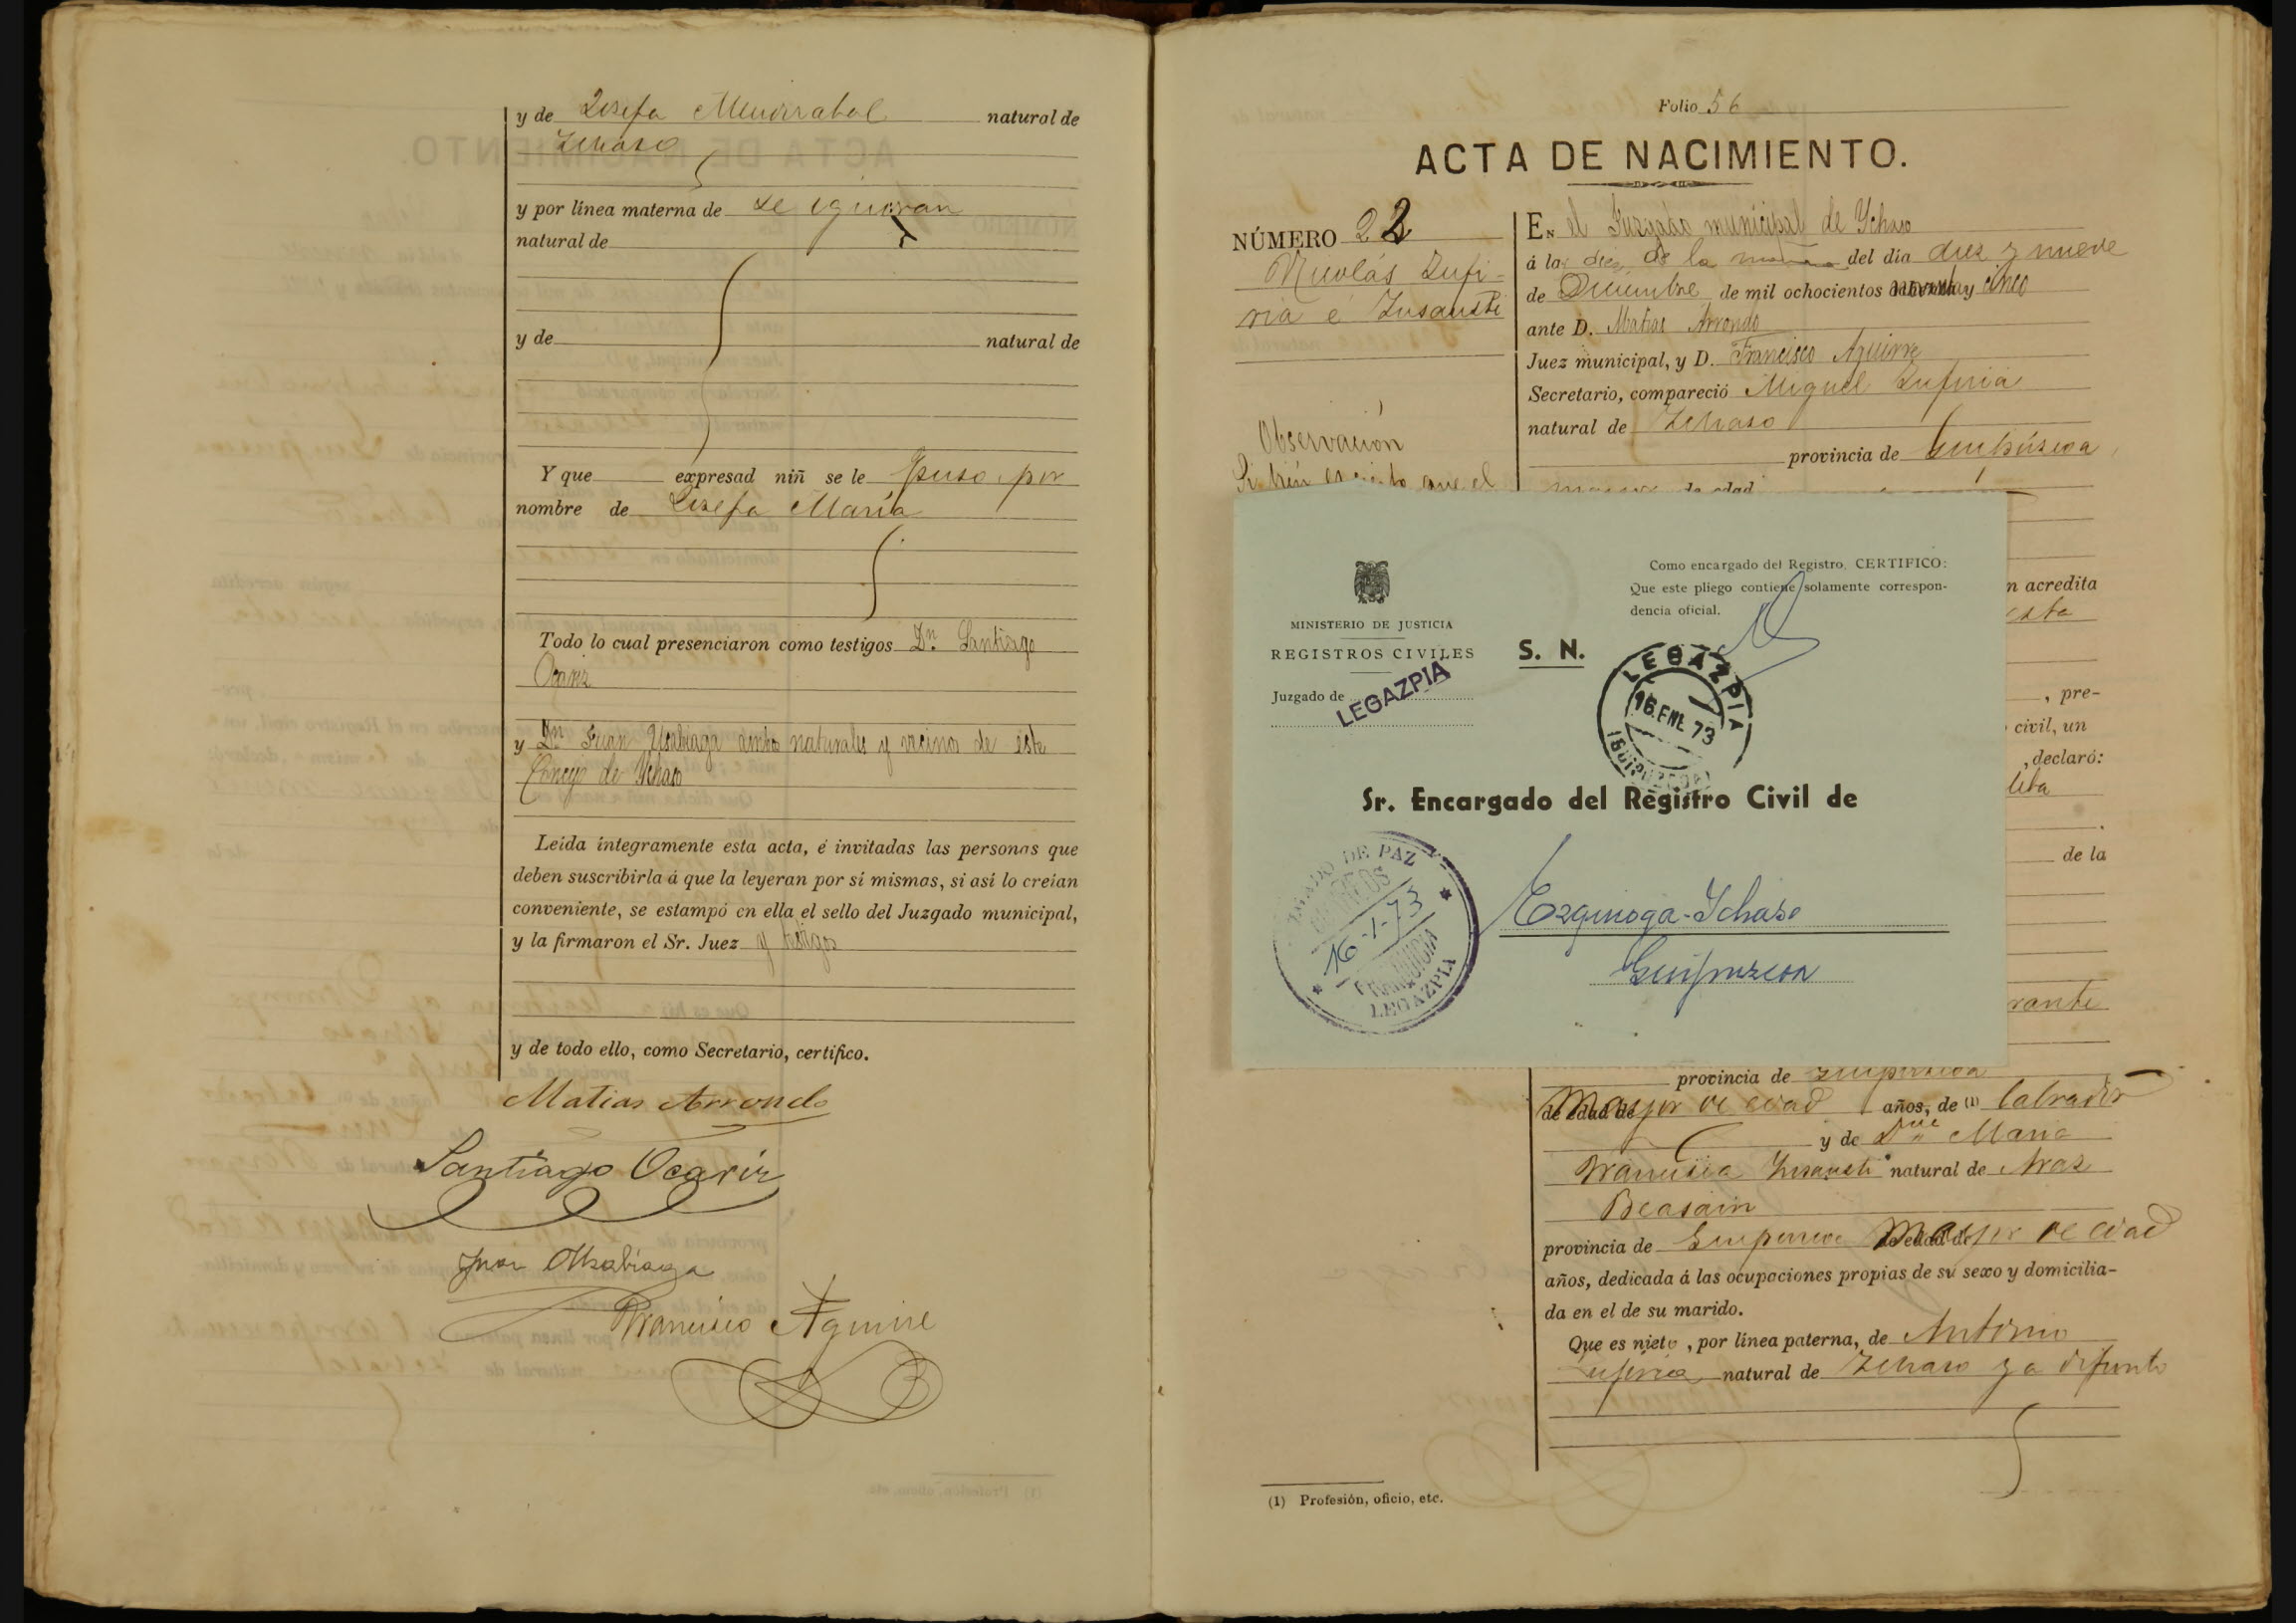 y de Josefa Mendizabal natural de
Ichaso
y por línea materna de se ignoran
natural de
y de natural de
Y que expresad niñ se le puso por
nombre de Josefa María
Todo lo cual presenciaron como testigos Dn. Santiago
Ocariz
y Dn Juan Usabiaga ambos naturales y vecinos de este
Concejo de Ichaso
Leída íntegramente esta acta, é invitadas las personas que
deben suscribirla á que la leyeran por sí mismas, si así lo creían
conveniente, se estampó en ella el sello del Juzgado municipal,
y la firmaron el Sr. Juez y testigos
y de todo ello, como Secretario, certifico.
Matias Arrondo
Santiago Ocariz
Juan Usabiaga
Francisco Aguirre
Folio 56
ACTA DE NACIMIENTO.
NÚMERO 22
Nicolás Zufi-
ria é Insausti
Observación
que el
En el Juzgado municipal de Ychaso
á las diez de la mañana del día diez y nueve
de Diciembre de mil ochocientos noventa y cinco
ante D. Matias Arrondo
Juez municipal, y D. Francisco Aguirre
Secretario, compareció Miguel Zufiria
natural de Ichaso
provincia de Guipúzcoa
mayor de edad
n acredita
esta
, pre-
civil, un
, declaró:
de la
rante
MINISTERIO DE JUSTICIA
REGISTROS CIVILES
Juzgado de LEGAZPIA
S. N.
Como encargado del Registro, CERTIFICO:
Que este pliego contiene solamente correspon-
dencia oficial.
LEGAZPIA
16 ENE 73
(GUIPUZCOA)
Sr. Encargado del Registro Civil de
JUZGADO DE PAZ
CORREOS
16-1-73
FRANQUICIA
LEGAZPIA
Ezquioga-Ichaso
Guipuzcoa
provincia de Guipuzcoa
mayor de edad años, de (1) labrador
y de Dña Maria
Francisca Insausti natural de Araz
Beasain
provincia de Guipuzcoa mayor de edad
años, dedicada á las ocupaciones propias de su sexo y domicilia-
da en el de su marido.
Que es nieto, por línea paterna, de Antonio
Zufiria natural de Ichaso ya difunto
(1) Profesión, oficio, etc.